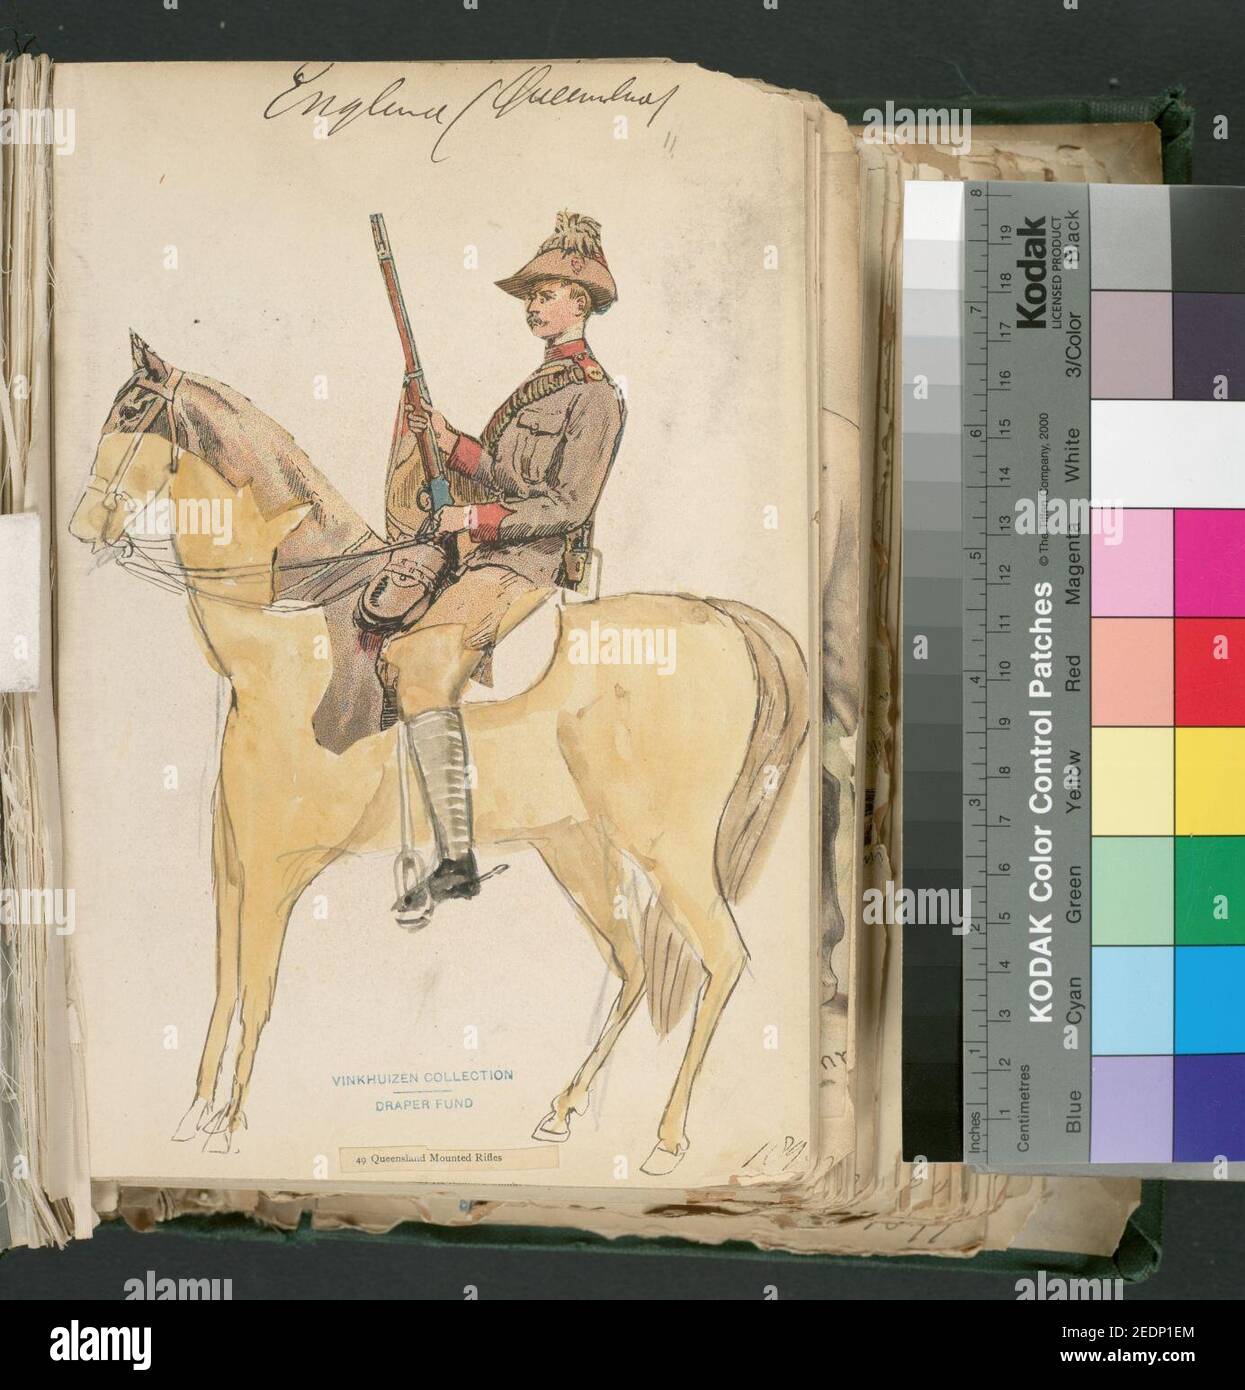 England (Queensland)
VINKHUIZEN COLLECTION
DRAPER FUND
49 Queensland Mounted Rifles
Kodak
LICENSED PRODUCT
KODAK Color Control Patches
© The Tiffen Company, 2000
Blue
Cyan
Green
Yellow
Red
Magenta
White
3/Color
Black
Inches
1
2
3
4
5
6
7
8
Centimetres
1
2
3
4
5
6
7
8
9
10
11
12
13
14
15
16
17
18
19
alamy
Image ID: 2EDP1EM
www.alamy.com